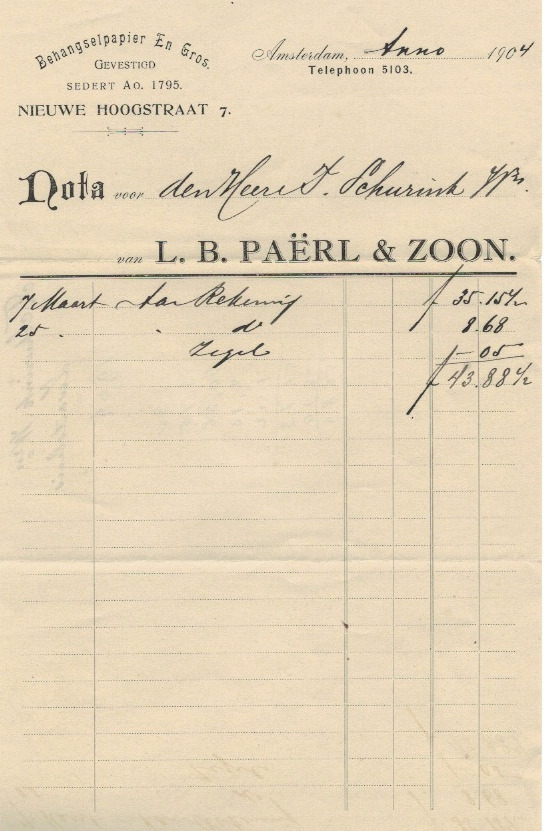 Behangselpapier En Gros.
GEVESTIGD
SEDERT AO. 1795.
NIEUWE HOOGSTRAAT 7.
Amsterdam, Anno 1904
Telephoon 5103.
Nota voor den Heere T. Schurink
van L. B. PAËRL & ZOON.
7 Maart Aan Rekening f 35.15½
25 . " do 8.68
Zegel -05
f 43.88½